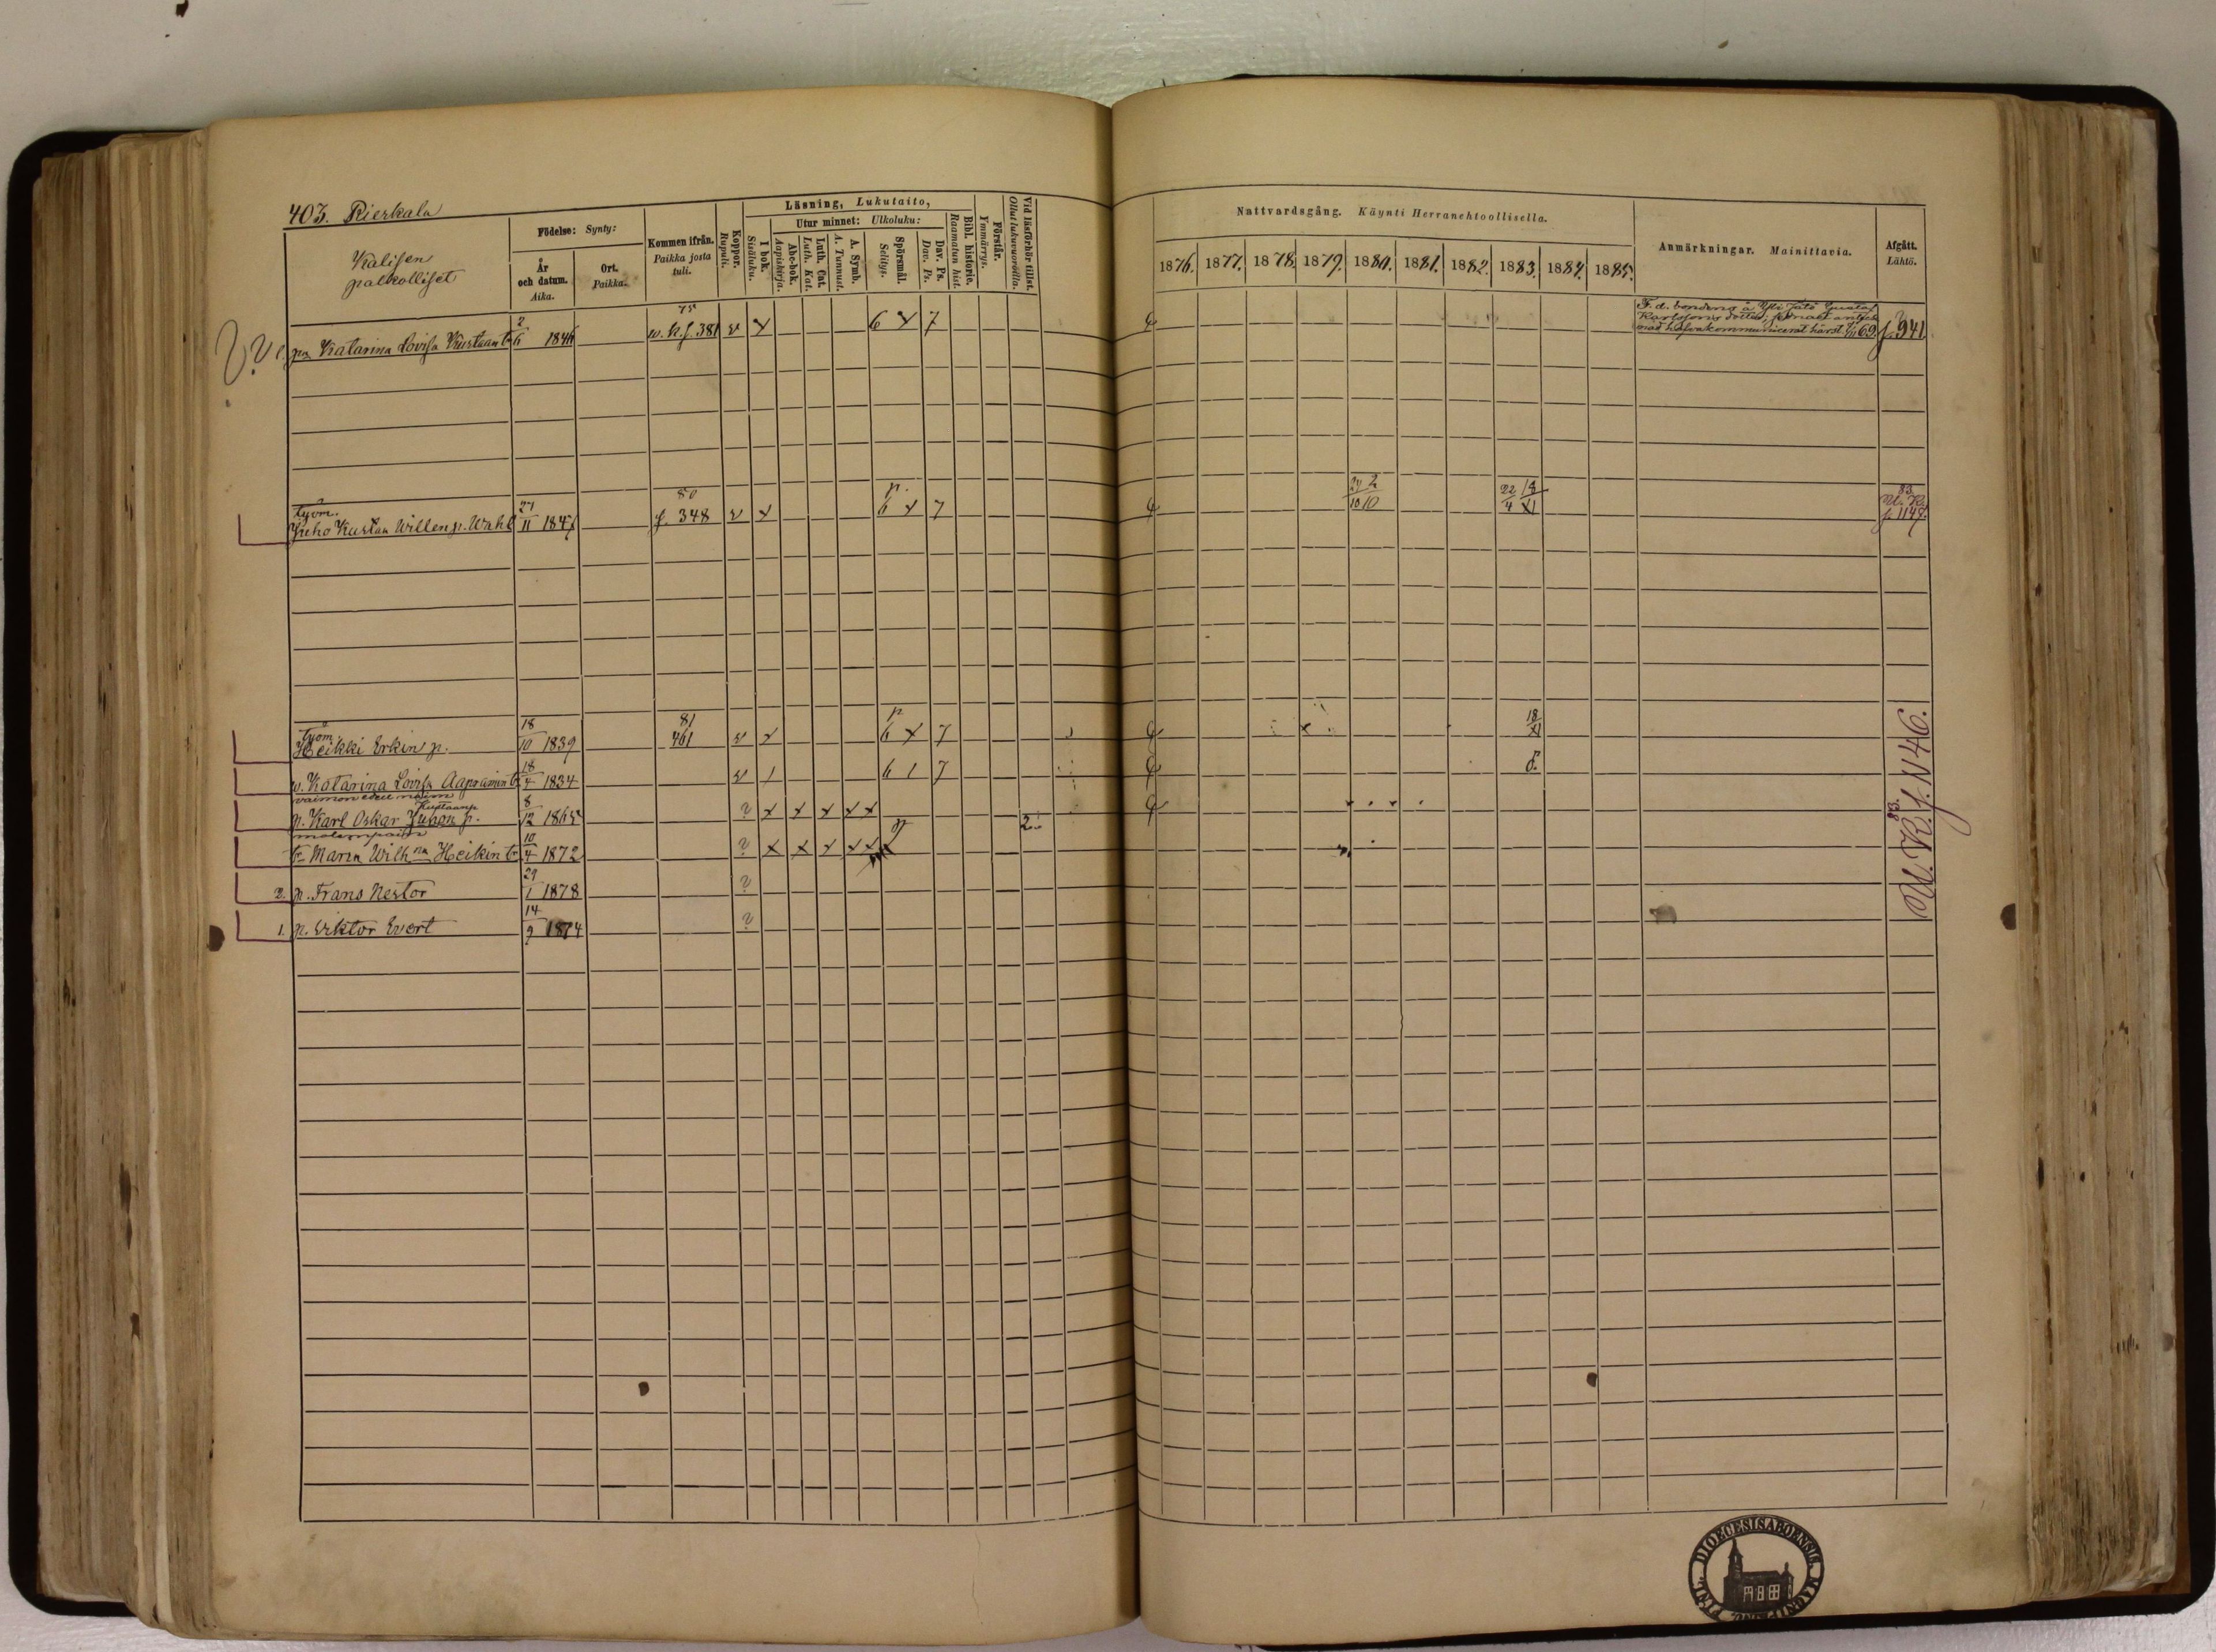 403. Pierkala
Kalisen
palkolliset
Födelse: Synty:
År
och datum.
Aika.
Ort.
Paikka.
Kommen ifrån.
Paikka josta
tuli.
Koppor.
Rupuli.
Läsning, Lukutaito,
I bok.
Sisäluku.
Utur minnet: Ulkoluku:
Abc-bok.
Aapiskirja.
Luth. Cat.
Luth. Kat.
A. Symb.
A. Tunnust.
Spörsmål.
Selitys.
Dav. Ps.
Dav. Ps.
Bibl. historie.
Raamatun hist.
Förstår.
Ymmärrys.
Vid läsförhör tillst.
Ollut lukuvuoroilla.
Nattvardsgång. Käynti Herranehtoollisella.
1876. 1877. 1878. 1879. 1880. 1881. 1882. 1883. 1884. 1885.
Anmärkningar. Mainittavia.
Afgått.
Lähtö.
pa Katarina Lovisa Kustaant. 2/6 1846 75 w. K. f. 381 v x 6 x 7 f. 941.
työm.
Juho Kustaa Willen p. Wahl 27/11 1847 80 f. 348 v x p. 6 x 7 24/10 2/10 22/4 18/XI 83 U. K. f. 1147.
työm.
Heikki Erkin p. 18/10 1839 81 461 v x p 6 x 7 18/XI
w. Katarina Lovisa Aapramin t. 18/4 1834 v 1 6 1 7
p. Karl Oskar Juhan p. Kustaanp. 8/12 1865 ? x x x x x
molempain
t. Maria Wilhna Heikin t. 10/4 1872 ? x x x x x
2. p. Frans Nestor 29/1 1878 ?
1. p. Viktor Evert 14/9 1874 ?
83. U. K. f. N 46.
DIOECESIS ABOENSIS